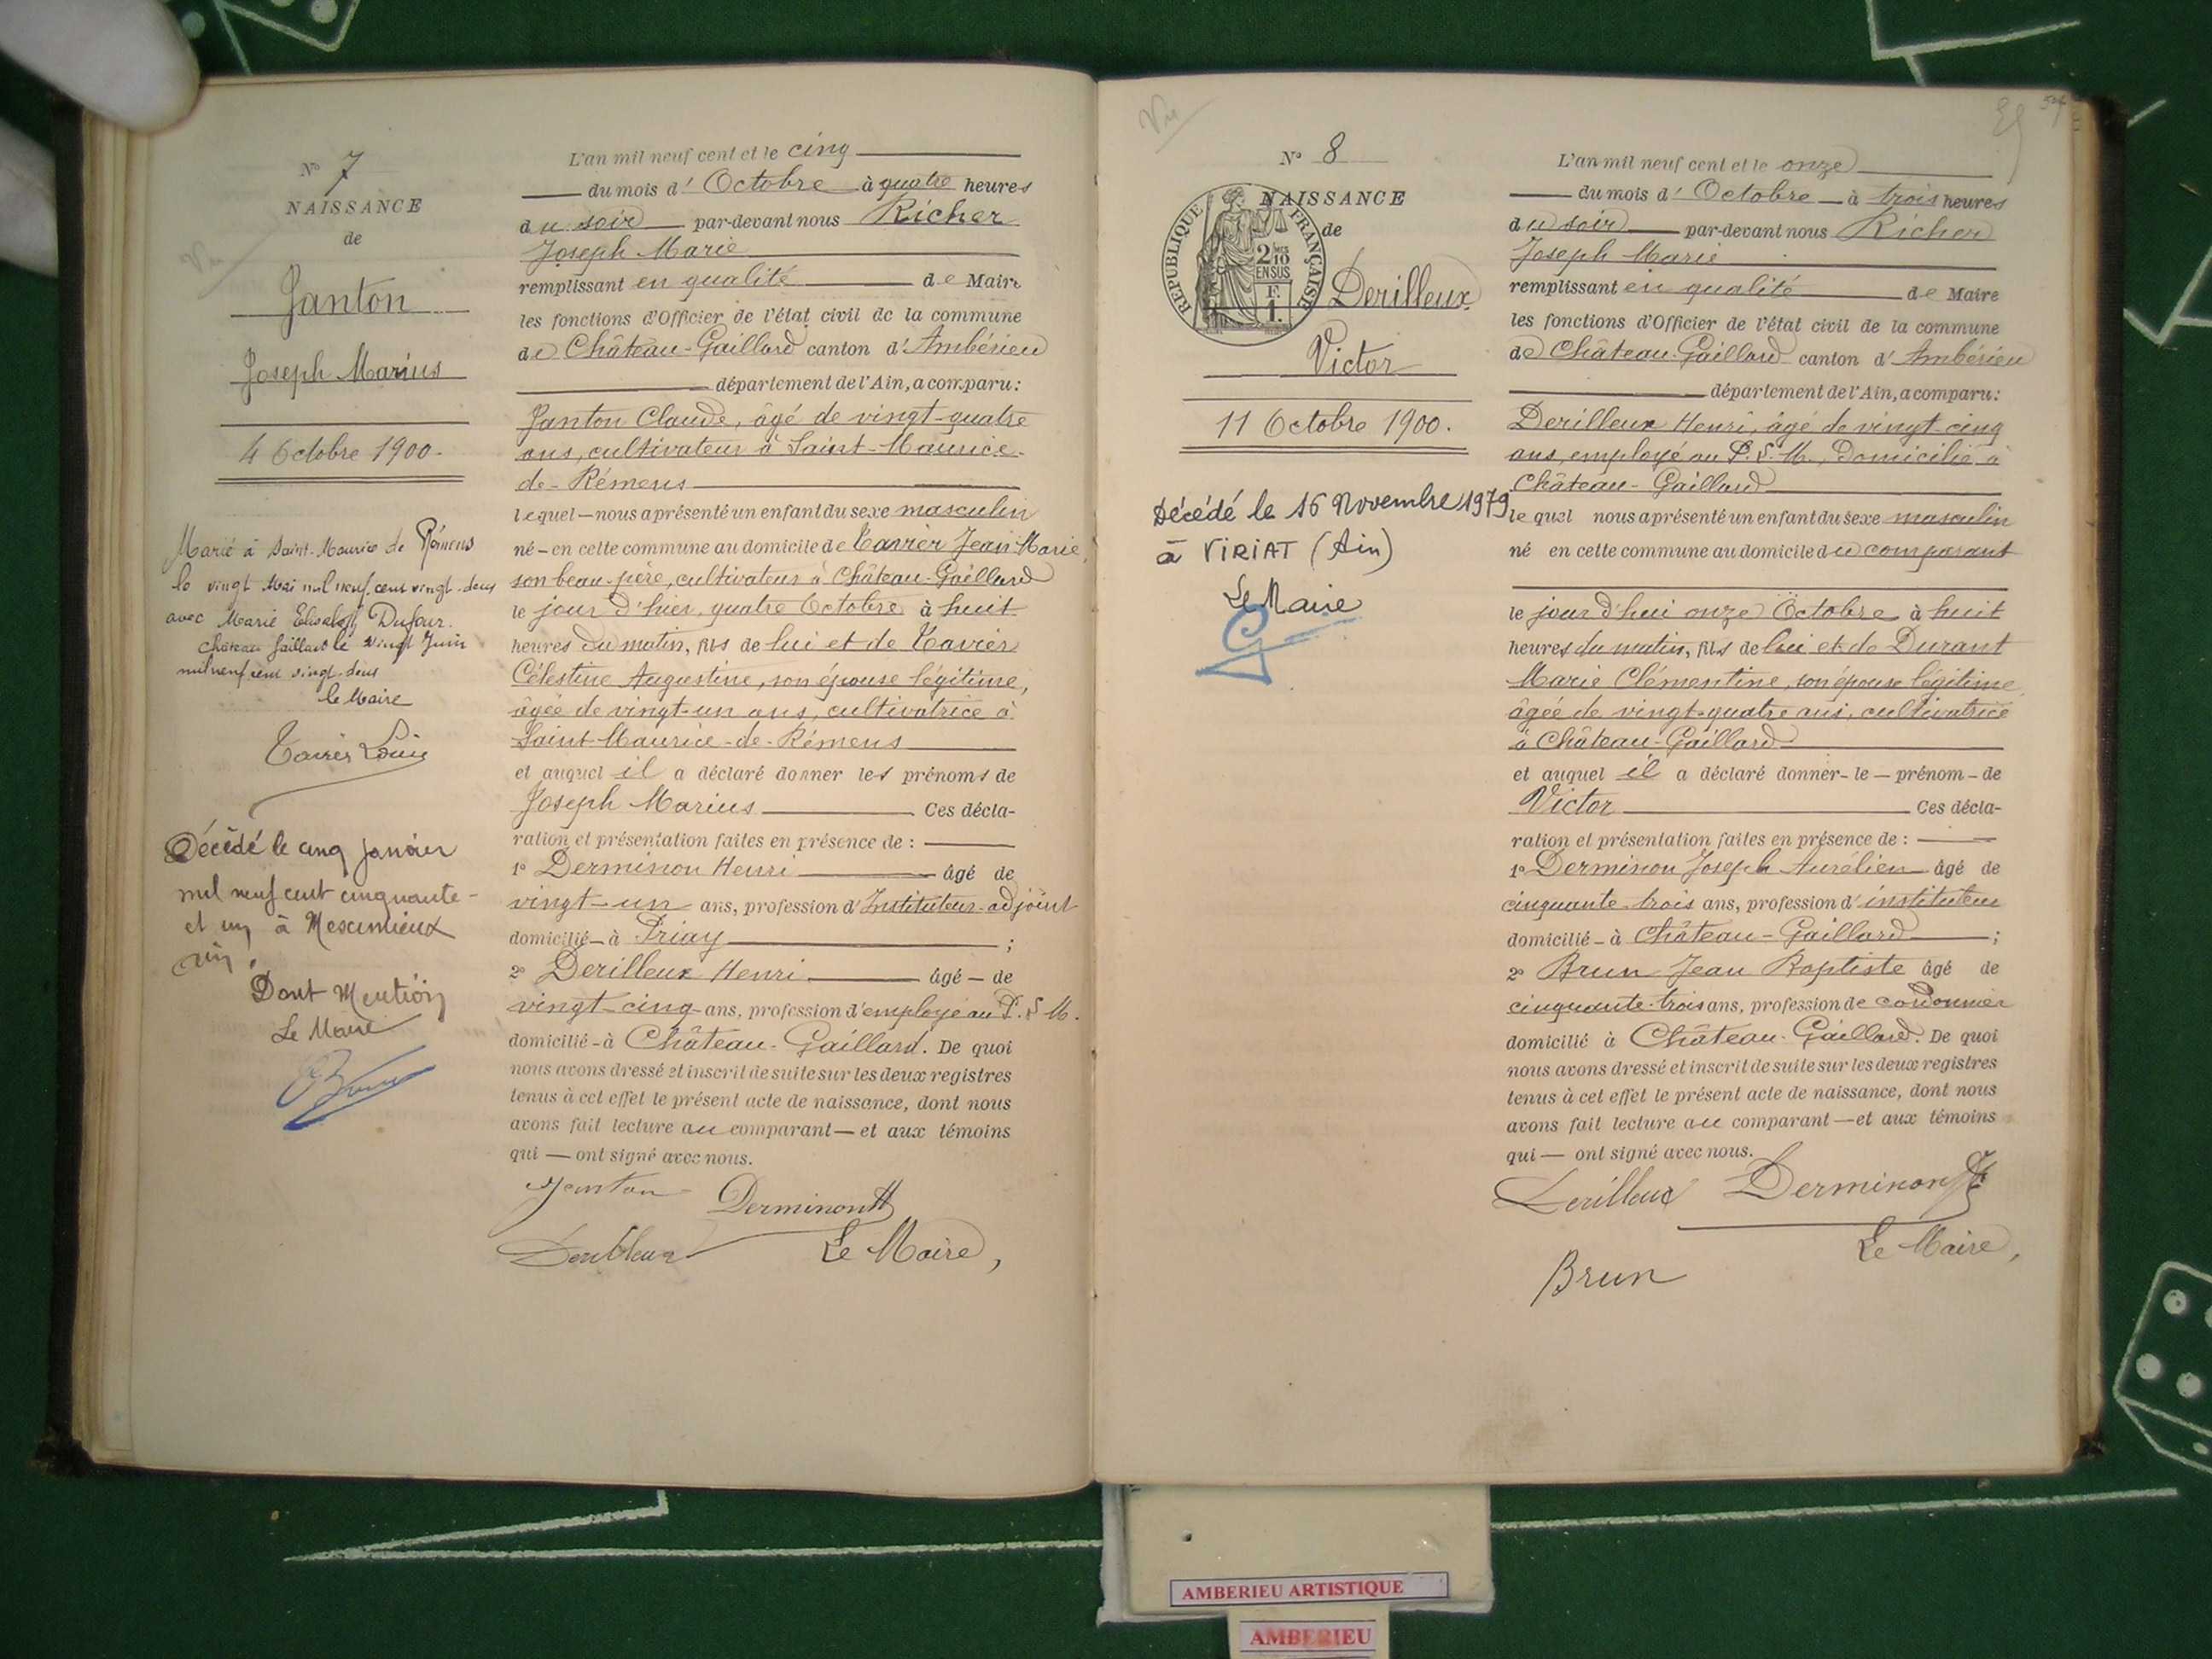 N° 7
NAISSANCE
de
Janton
Joseph Marius
4 Octobre 1900.
Marié à Saint-Maurice de Rémens
le vingt Mai mil neuf cent vingt-deux
avec Marie Elisabeth Dufour.
Château Gaillard le vingt Juin
mil neuf cent vingt deux
le Maire
Tavier Louis
Décédé le cinq janvier
mil neuf cent cinquante-
et un à Meximieux
Ain.
Dont Mention
Le Maire
L'an mil neuf cent et le cinq
du mois d'Octobre à quatre heures
du soir par-devant nous Richer
Joseph Marie
remplissant en qualité de Maire
les fonctions d'Officier de l'état civil de la commune
de Château-Gaillard canton d'Ambérieu
département de l'Ain, a comparu:
Janton Claude, âgé de vingt-quatre
ans, cultivateur à Saint-Maurice-
de-Rémens
lequel — nous a présenté un enfant du sexe masculin
né - en cette commune au domicile de Tavier Jean Marie,
son beau-père, cultivateur à Château-Gaillard
le jour d'hier, quatre Octobre à huit
heures du matin, fils de lui et de Tavier
Célestine Augustine, son épouse légitime,
âgée de vingt-un ans, cultivatrice à
Saint-Maurice-de-Rémens
et auquel il a déclaré donner les prénoms de
Joseph Marius Ces décla-
ration et présentation faites en présence de :
1° Derminon Henri âgé de
vingt-un ans, profession d'Instituteur-adjoint
domicilié - à Priay ;
2° Derilleux Henri âgé - de
vingt-cinq ans, profession d'employé au P. L. M.
domicilié - à Château-Gaillard. De quoi
nous avons dressé et inscrit de suite sur les deux registres
tenus à cet effet le présent acte de naissance, dont nous
avons fait lecture au comparant — et aux témoins
qui — ont signé avec nous.
Janton Derminon H
Derilleux Le Maire,
Vu
54
N° 8
NAISSANCE
de
REPUBLIQUE FRANÇAISE
2/10 EN SUS
F. 1.
Derilleux
Victor
11 Octobre 1900.
Décédé le 16 Novembre 1979
à VIRIAT (Ain)
Le Maire
L'an mil neuf cent et le onze
du mois d'Octobre à trois heures
du soir par-devant nous Richer
Joseph Marie
remplissant en qualité de Maire
les fonctions d'Officier de l'état civil de la commune
de Château-Gaillard canton d'Ambérieu
département de l'Ain, a comparu:
Derilleux Henri, âgé de vingt-cinq
ans, employé au P. L. M., domicilié à
Château-Gaillard
le quel nous a présenté un enfant du sexe masculin
né en cette commune au domicile du comparant
le jour d'hui onze Octobre à huit
heures du matin, fils de lui et de Durant
Marie Clémentine, son épouse légitime,
âgée de vingt-quatre ans, cultivatrice
à Château-Gaillard
et auquel il a déclaré donner - le — prénom - de
Victor Ces décla-
ration et présentation faites en présence de :
1° Derminon Joseph Aurélien âgé de
cinquante-trois ans, profession d'instituteur
domicilié - à Château-Gaillard ;
2° Brun Jean Baptiste âgé de
cinquante-trois ans, profession de cordonnier
domicilié à Château-Gaillard. De quoi
nous avons dressé et inscrit de suite sur les deux registres
tenus à cet effet le présent acte de naissance, dont nous
avons fait lecture au comparant — et aux témoins
qui — ont signé avec nous.
Derilleux Derminon
Le Maire,
Brun
AMBERIEU ARTISTIQUE
AMBERIEU